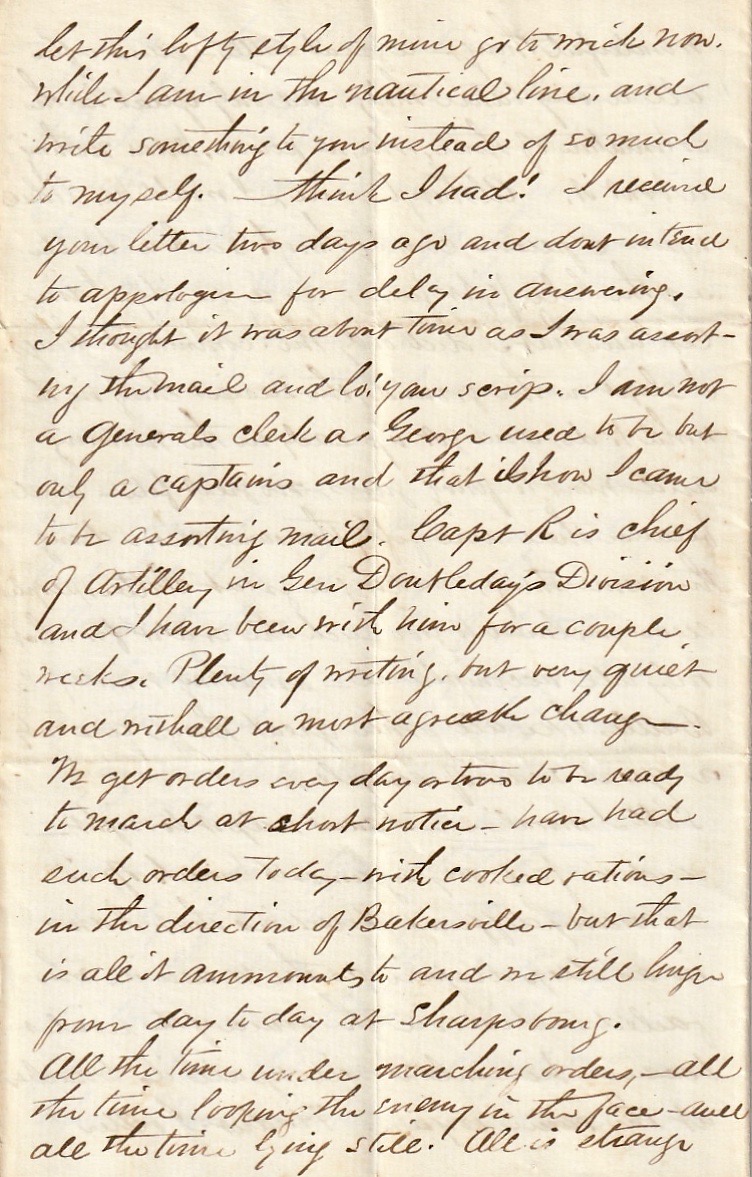 let this lofty style of mine go to wrick now.
while I am in the nautical line, and
write something to you instead of so much
to myself. — think I had! I received
your letter two days ago and dont intend
to appologise for delay in answering.
I thought it was about time as I was assort-
ing the mail and lo! your scrip. I am not
a Generals clerk as George used to be but
only a captains and that is how I came
to be assorting mail. Capt R is chief
of Artillery in Gen Doubleday's Division
and I have been with him for a couple
weeks. Plenty of writing, but very quiet
and withall a most agreeable change.
We get orders every day or two to be ready
to march at short notice – have had
such orders today – with cooked rations –
in the direction of Bakersville – but that
is all it ammounts to and we still linger
from day to day at Sharpsbourg.
All the time under marching orders, – all
the time looking the enemy in the face – and
all the time lying still. All is strange